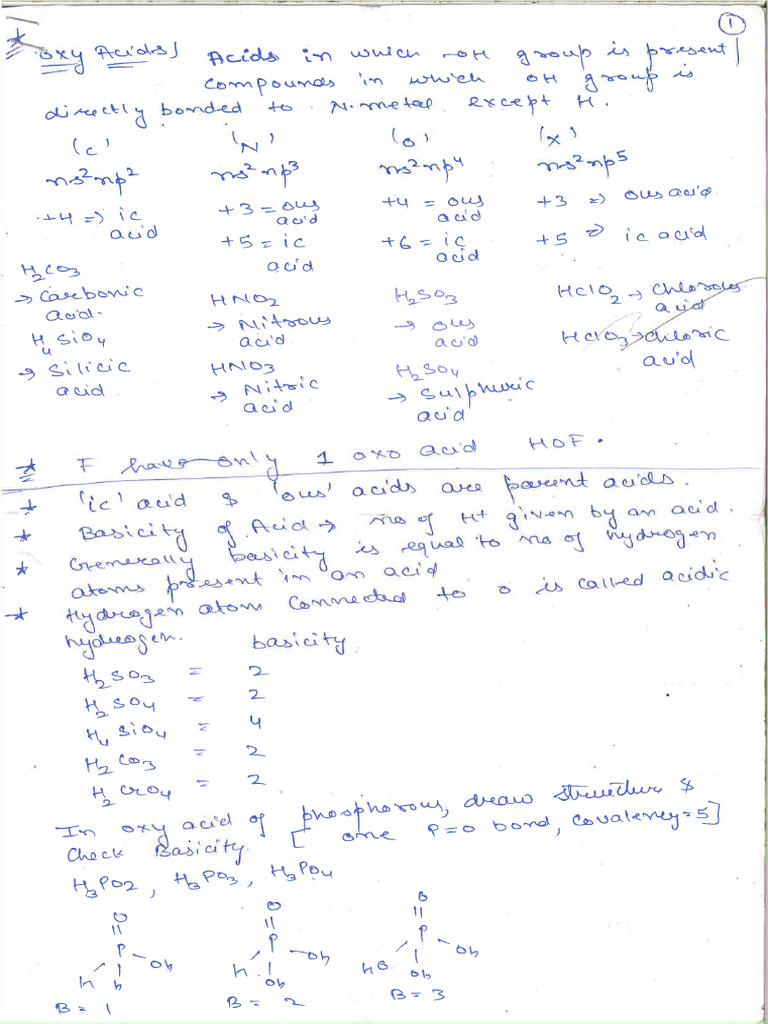 ①
* Oxy Acids / Acids in which -OH group is present /
compounds in which OH group is
directly bonded to N.metal except H.
('C') ('N') ('O') ('X')
ns²np² ns²np³ ns²np⁴ ns²np⁵
+4 => ic acid +3 = ous acid +4 = ous acid +3 => ous acid
+5 = ic acid +6 = ic acid +5 => ic acid
H₂CO₃ → Carbonic acid. HNO₂ → Nitrous acid H₂SO₃ → ous acid HClO₂ → Chlorous acid
H₄SiO₄ → Silicic acid HNO₃ → Nitric acid H₂SO₄ → Sulphuric acid HClO₃ → Chloric acid
* F have only 1 oxo acid HOF.
* 'ic' acid & 'ous' acids are parent acids.
* Basicity of Acid → no of H⁺ given by an acid.
* Generally basicity is equal to no of hydrogen
atoms present in an acid
* Hydrogen atom connected to O is called acidic
hydrogen. basicity
H₂SO₃ = 2
H₂SO₄ = 2
H₄SiO₄ = 4
H₂CO₃ = 2
H₂CrO₄ = 2
In oxy acid of phosphorous, draw structure &
Check Basicity. [one P=O bond, covalency=5]
H₃PO₂, H₃PO₃, H₃PO₄
O O O
P P P
H H OH H OH OH HO OH OH
B = 1 B = 2 B = 3